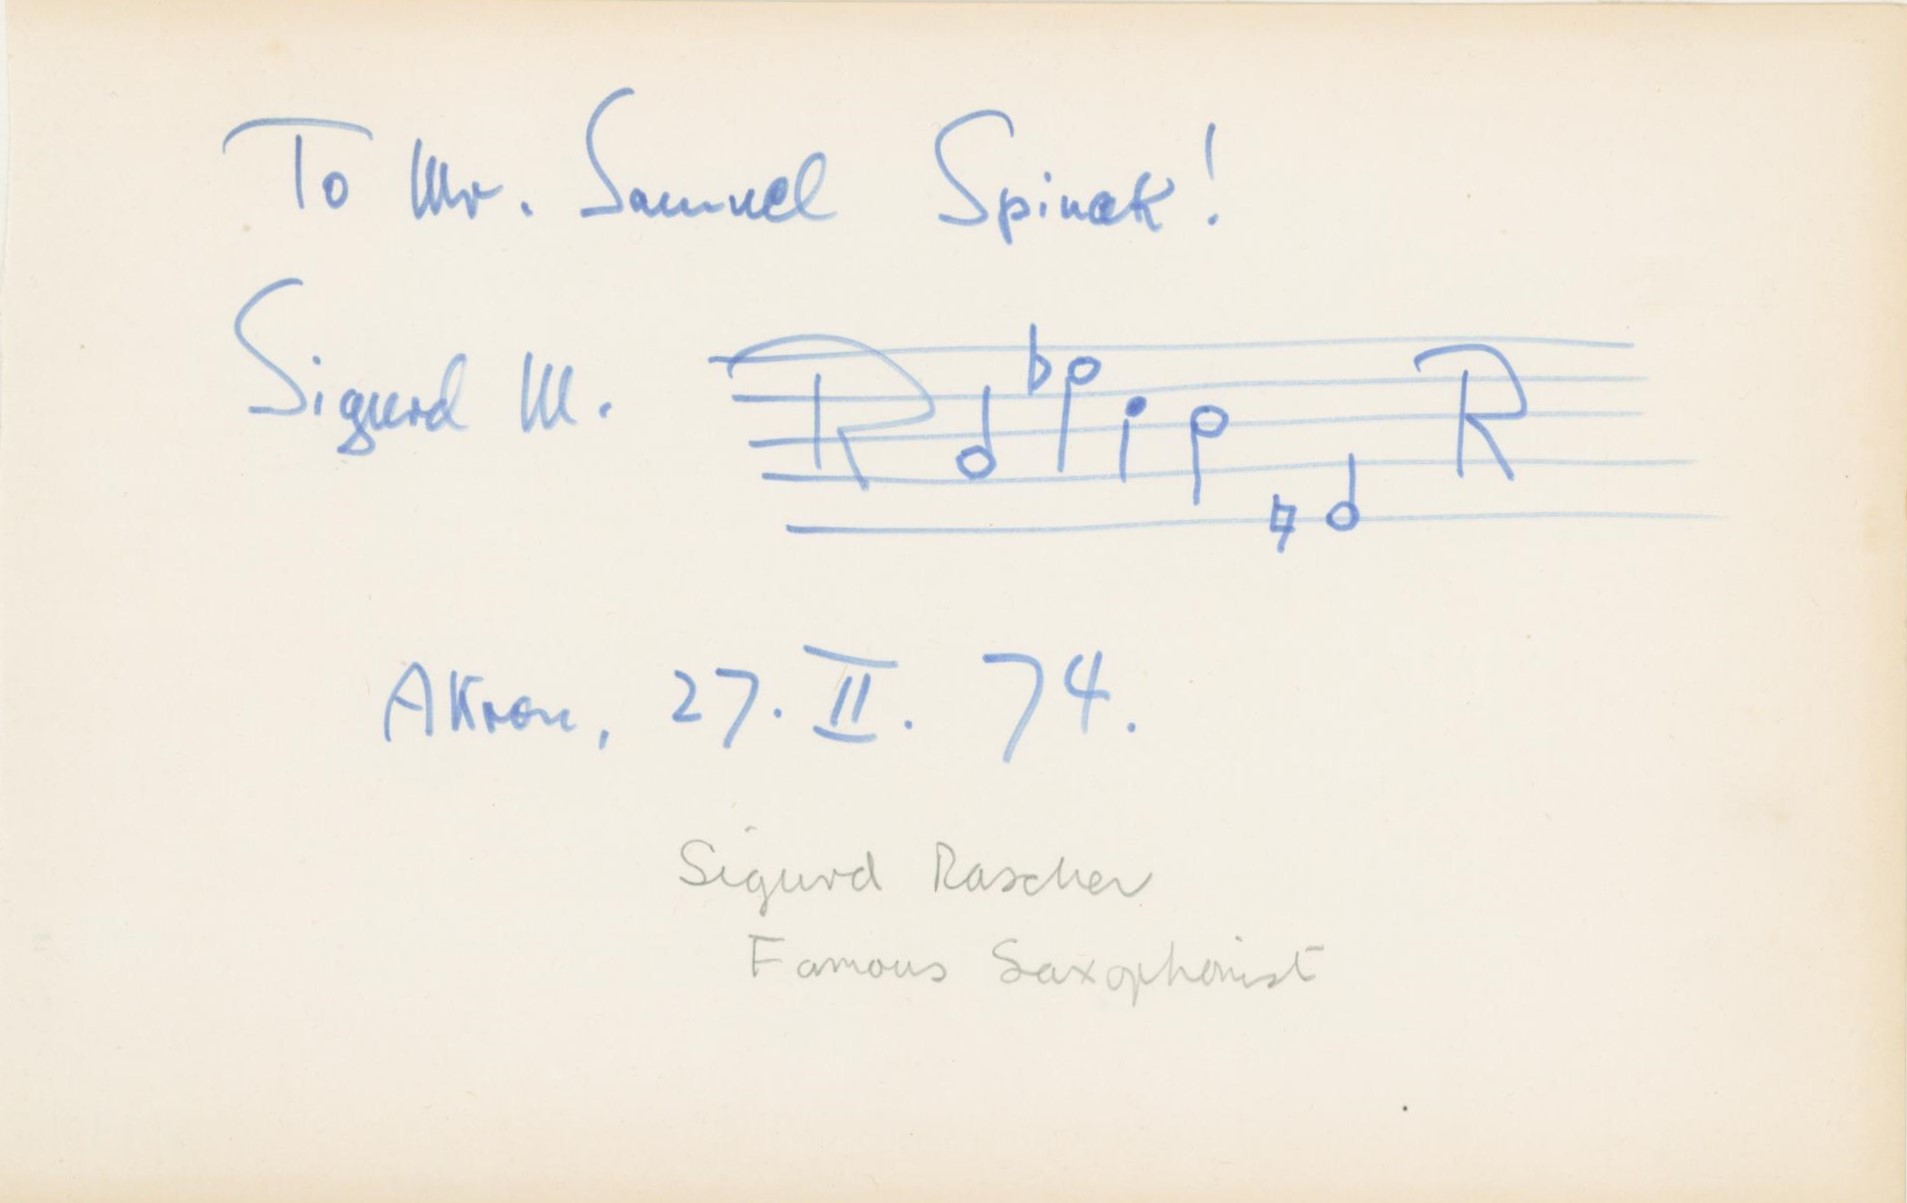 To Mr. Samuel Spinak!
Sigurd M. R R
Akron, 27. II. 74.
Sigurd Rascher
Famous Saxophonist